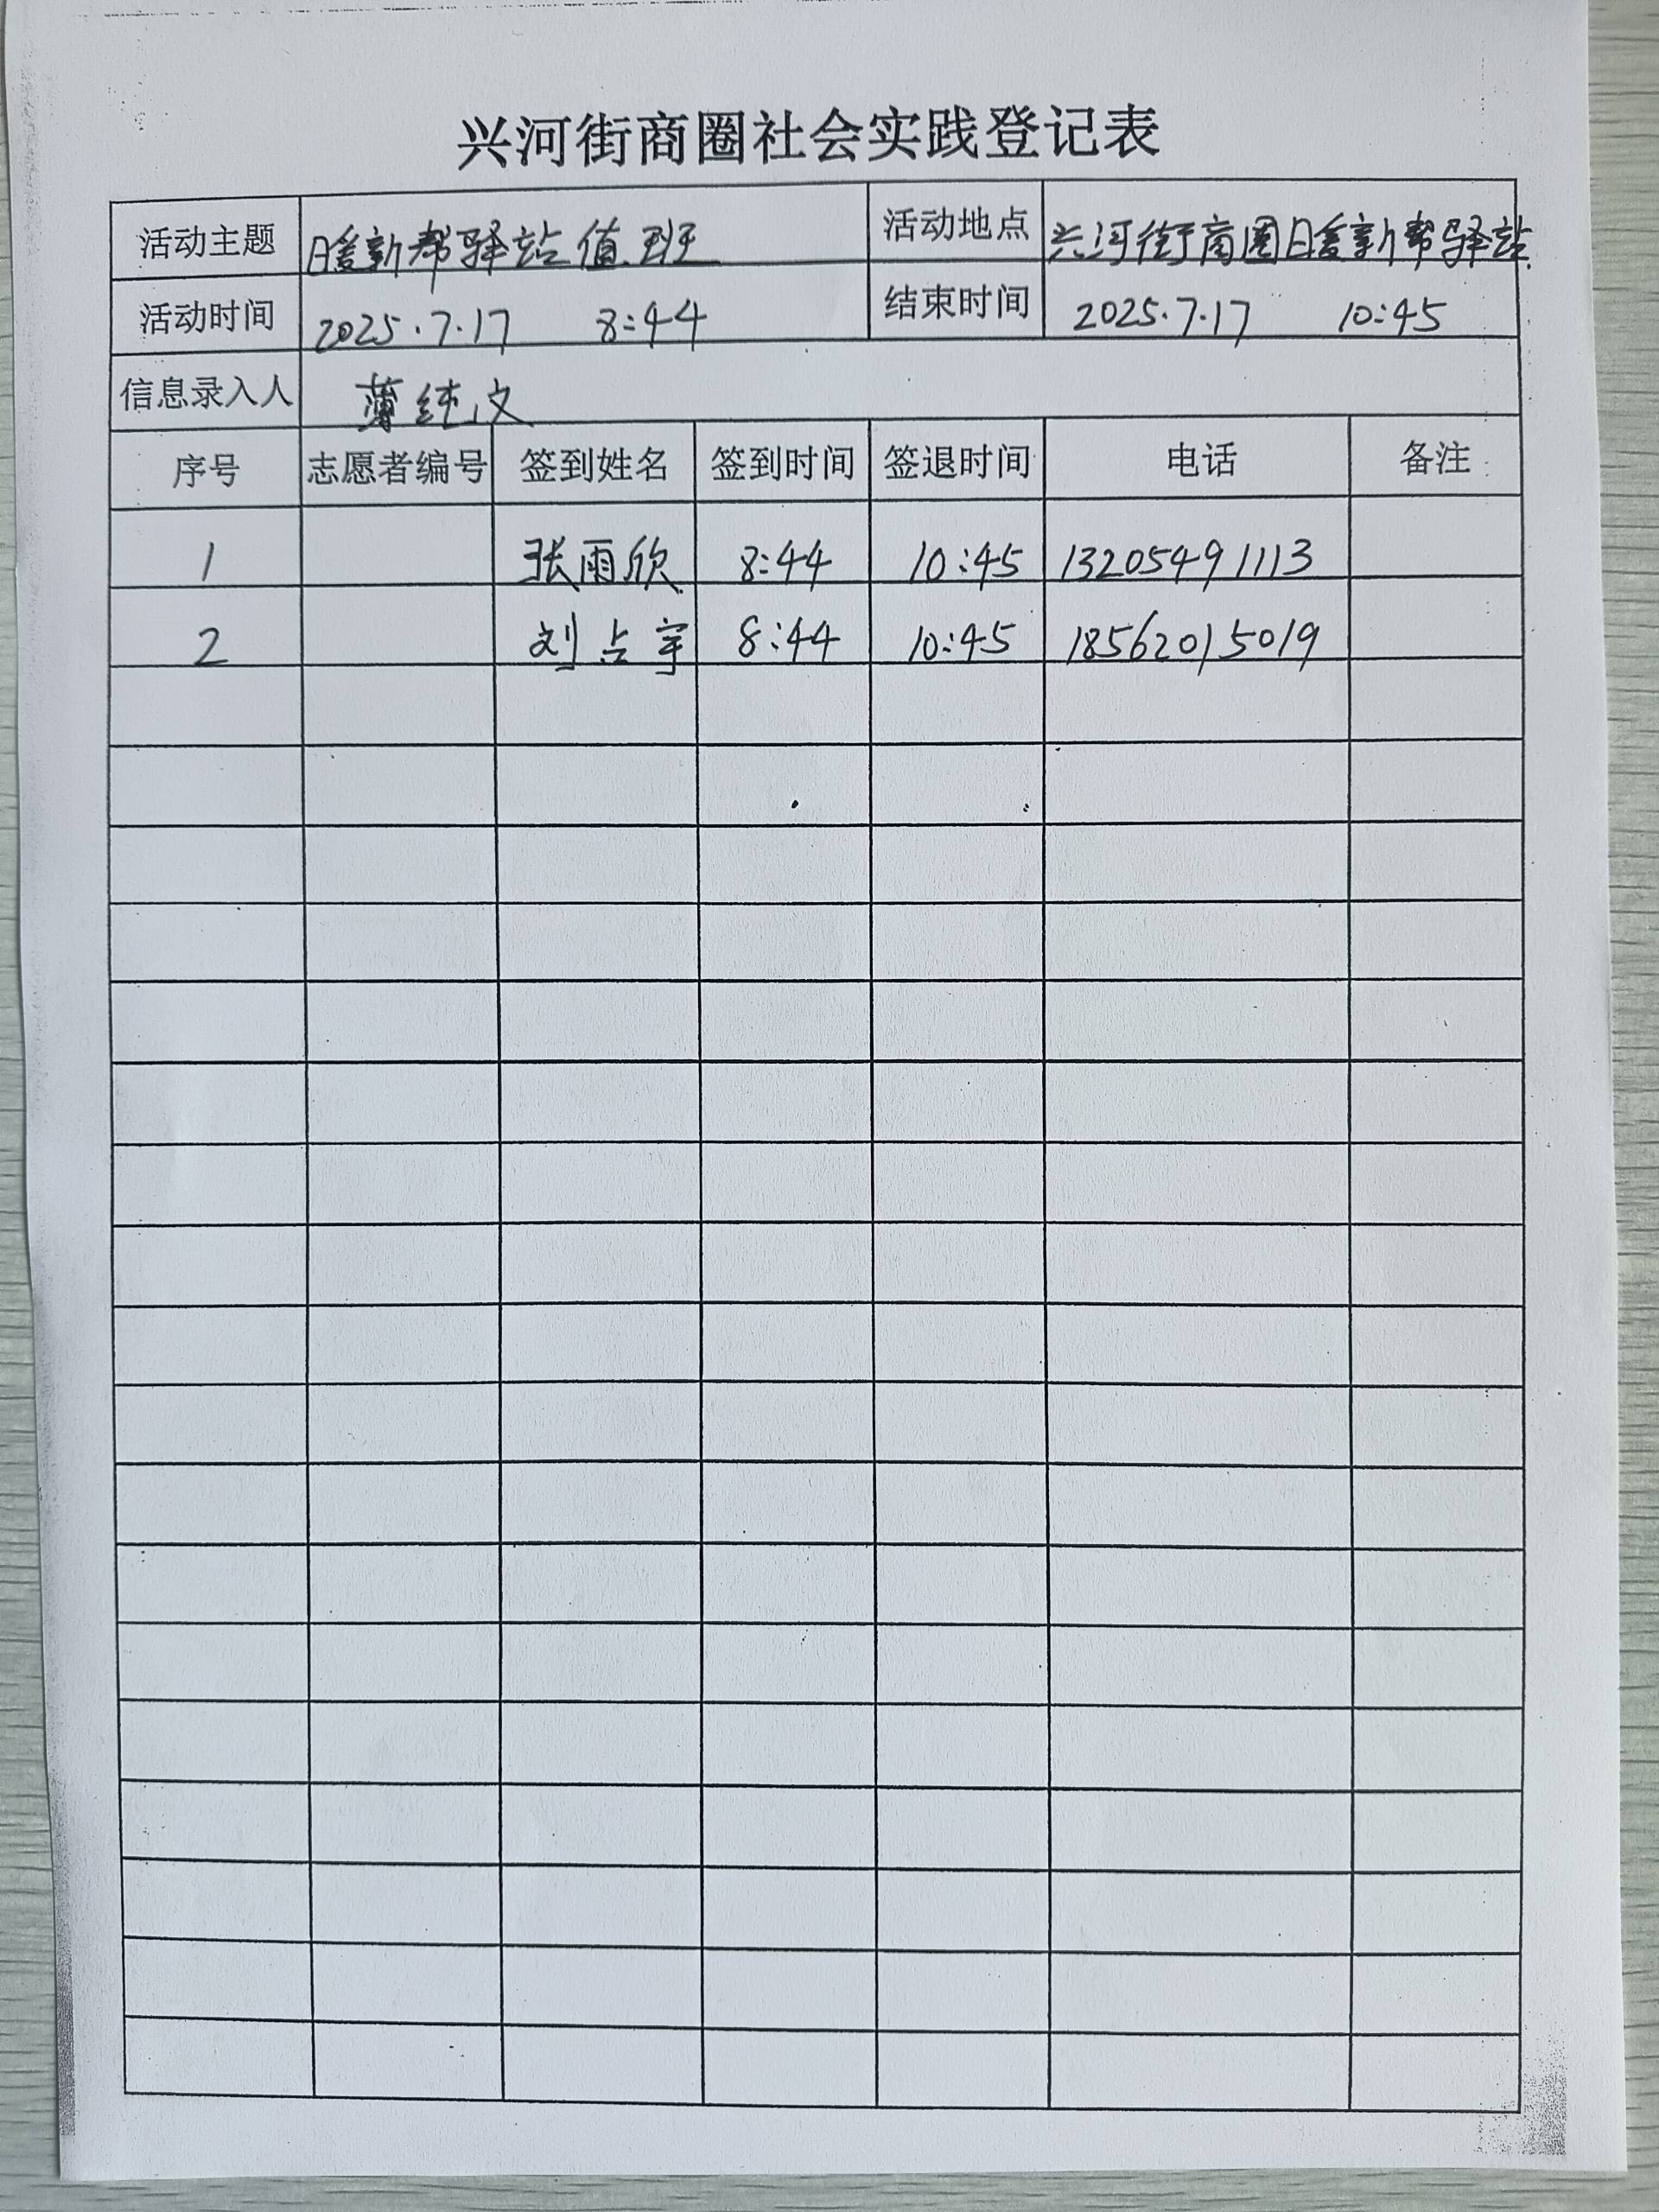 兴河街商圈社会实践登记表
活动主题 暖新帮驿站值班 活动地点 兴河街商圈暖新帮驿站
活动时间 2025.7.17 8:44 结束时间 2025.7.17 10:45
信息录入人 薄纯文
序号 志愿者编号 签到姓名 签到时间 签退时间 电话 备注
1 张雨欣 8:44 10:45 13205491113
2 刘占宇 8:44 10:45 18562015019